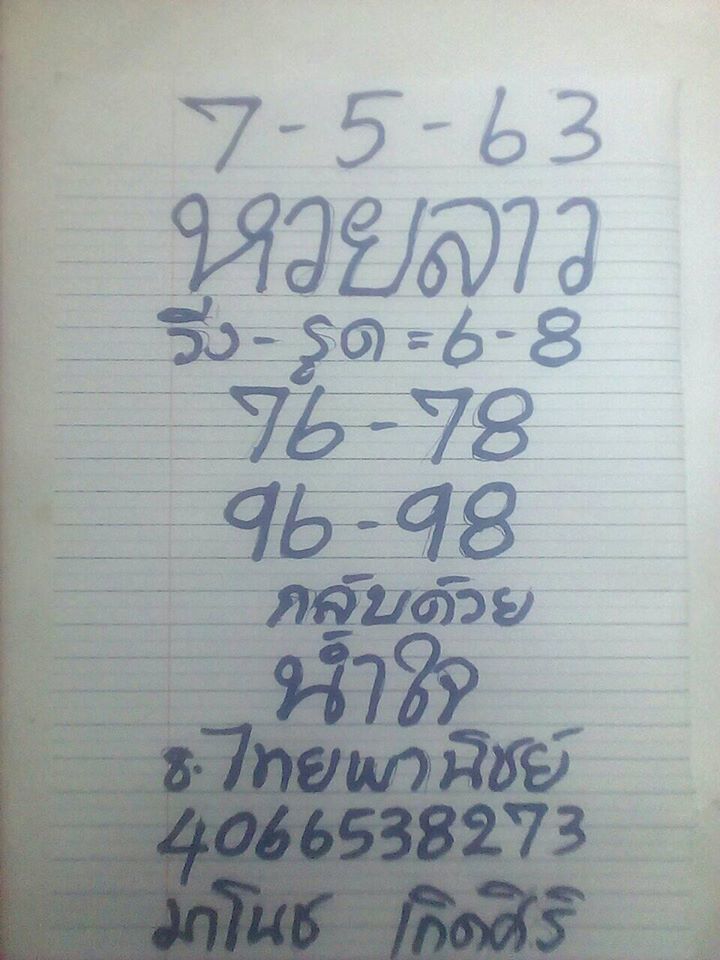 7-5-63
หวยลาว
วิ่ง-รูด=6-8
76-78
96-98
กลับด้วย
น้ำใจ
ธ.ไทยพานิชย์
4066538273
มาโนช เกิดศิริ